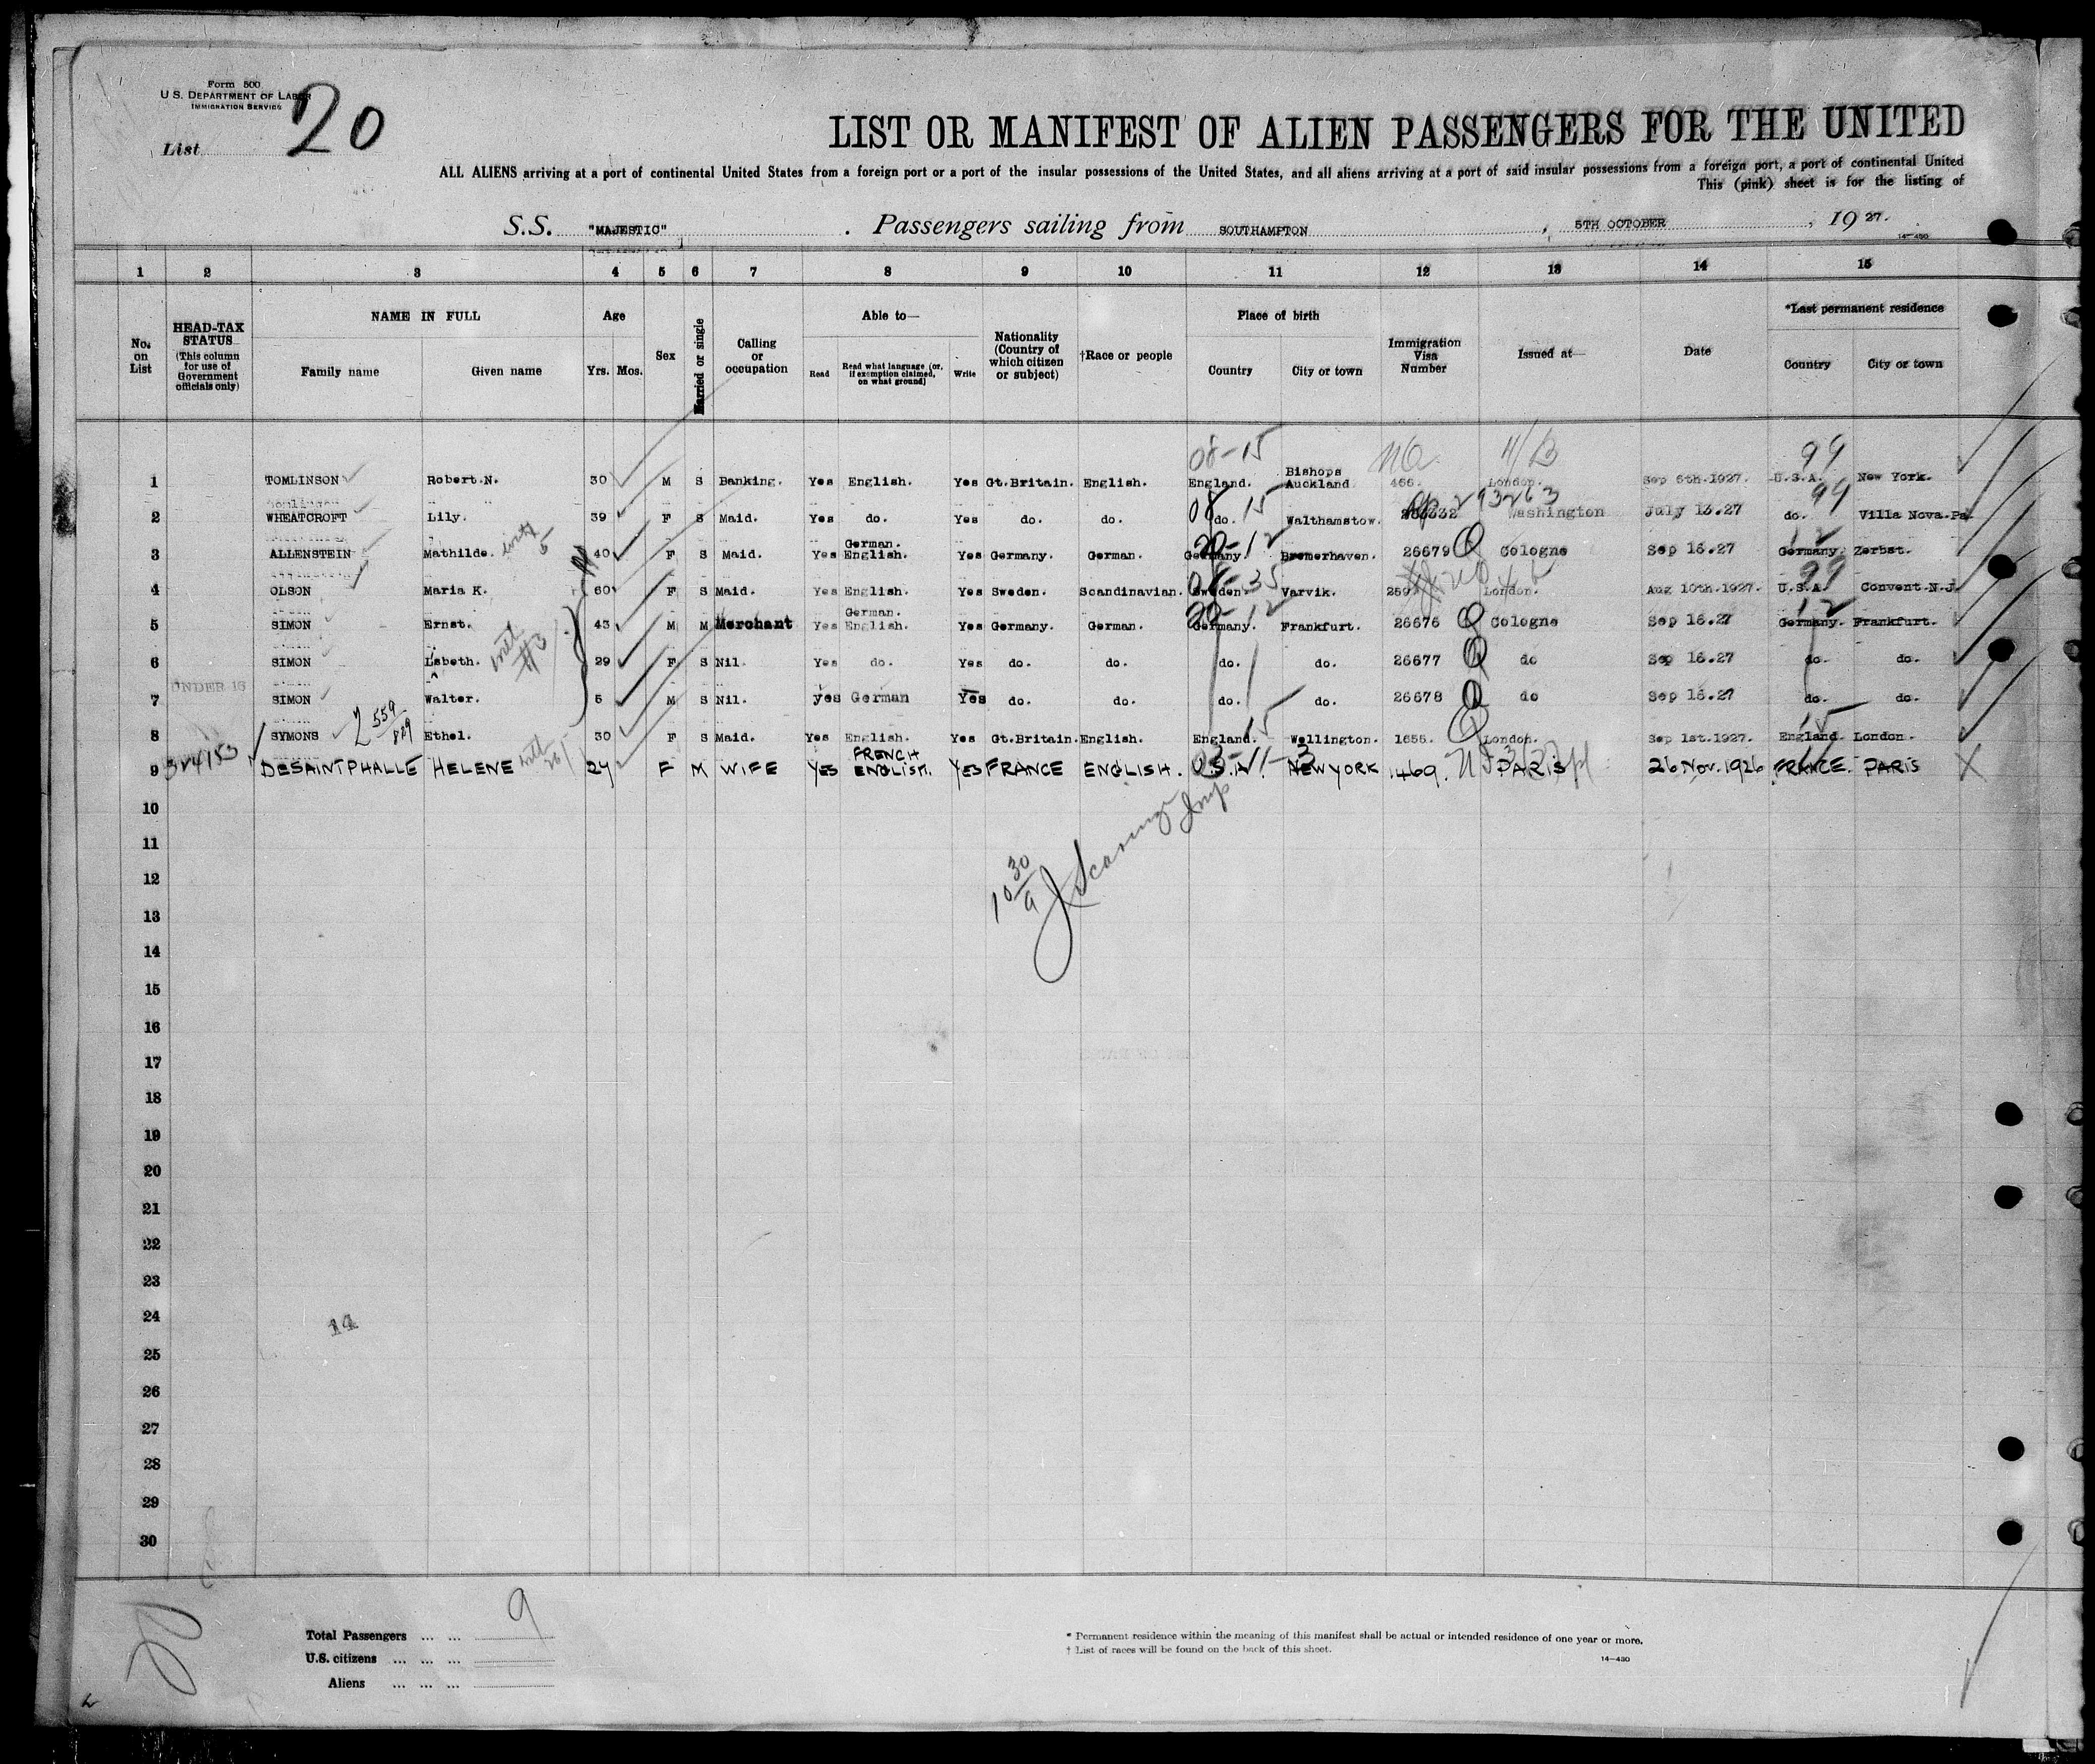 Form 500
U. S. DEPARTMENT OF LABOR
IMMIGRATION SERVICE
List 20
LIST OR MANIFEST OF ALIEN PASSENGERS FOR THE UNITED
ALL ALIENS arriving at a port of continental United States from a foreign port or a port of the insular possessions of the United States, and all aliens arriving at a port of said insular possessions from a foreign port, a port of continental United
This (pink) sheet is for the listing of
S.S. "MAJESTIC" . Passengers sailing from SOUTHAMPTON , 5TH OCTOBER , 19 27.
14-430
1 2 3 4 5 6 7 8 9 10 11 12 13 14 15
No. on List
HEAD-TAX STATUS (This column for use of Government officials only)
NAME IN FULL
Family name Given name
Age
Yrs. Mos.
Sex
Married or single
Calling or occupation
Able to—
Read Read what language (or, if exemption claimed, on what ground) Write
Nationality (Country of which citizen or subject)
†Race or people
Place of birth
Country City or town
Immigration Visa Number
Issued at—
Date
*Last permanent residence
Country City or town
08-15 11/B 99
1 TOMLINSON Robert N. 30 M S Banking. Yes English. Yes Gt.Britain. English. England. Bishops Auckland 466. London. Sep 6th.1927. U.S.A. New York.
08 15 293263 99
2 WHEATCROFT Lily. 39 F S Maid. Yes do. Yes do. do. do. Walthamstow. Washington July 13.27 do. Villa Nova Pa.
20-12 12
3 ALLENSTEIN Mathilde. with 5 40 F S Maid. Yes German. English. Yes Germany. German. Germany. Bremerhaven. 26679 Cologne Sep 16.27 Germany. Zerbst.
35 99
4 OLSON Maria K. 60 F S Maid. Yes English. Yes Sweden. Scandinavian. Sweden. Varvik. 259 London. Aug 10th.1927. U.S.A. Convent N.J.
20-12 12
5 SIMON Ernst. 43 M M Merchant Yes German. English. Yes Germany. German. Germany. Frankfurt. 26676 Cologne Sep 16.27 Germany. Frankfurt.
6 SIMON Lsbeth. with #3 29 F S Nil. Yes do. Yes do. do. do. do. 26677 do Sep 16.27 do. do.
UNDER 16
7 SIMON Walter. 5 M S Nil. yes German Yes do. do. do. do. 26678 do Sep 16.27 do. do.
15 15
8 SYMONS 2 559/889 Ethel. 30 F S Maid. Yes English. Yes Gt.Britain. English. England. Wellington. 1655. London. Sep 1st.1927. England. London.
9 324153 DESAINTPHALLE HELENE 24 F M WIFE YES FRENCH ENGLISH. YES FRANCE ENGLISH. NEW YORK 1469. PARIS 26 Nov. 1926 FRANCE. PARIS X
10
10 30/a
11
12
13
14
15
16
17
18
19
20
21
22
23
24
14
25
26
27
28
29
30
20
Total Passengers ... ... 9
U.S. citizens ... ... ...
Aliens ... ... ...
* Permanent residence within the meaning of this manifest shall be actual or intended residence of one year or more.
† List of races will be found on the back of this sheet.
14-430